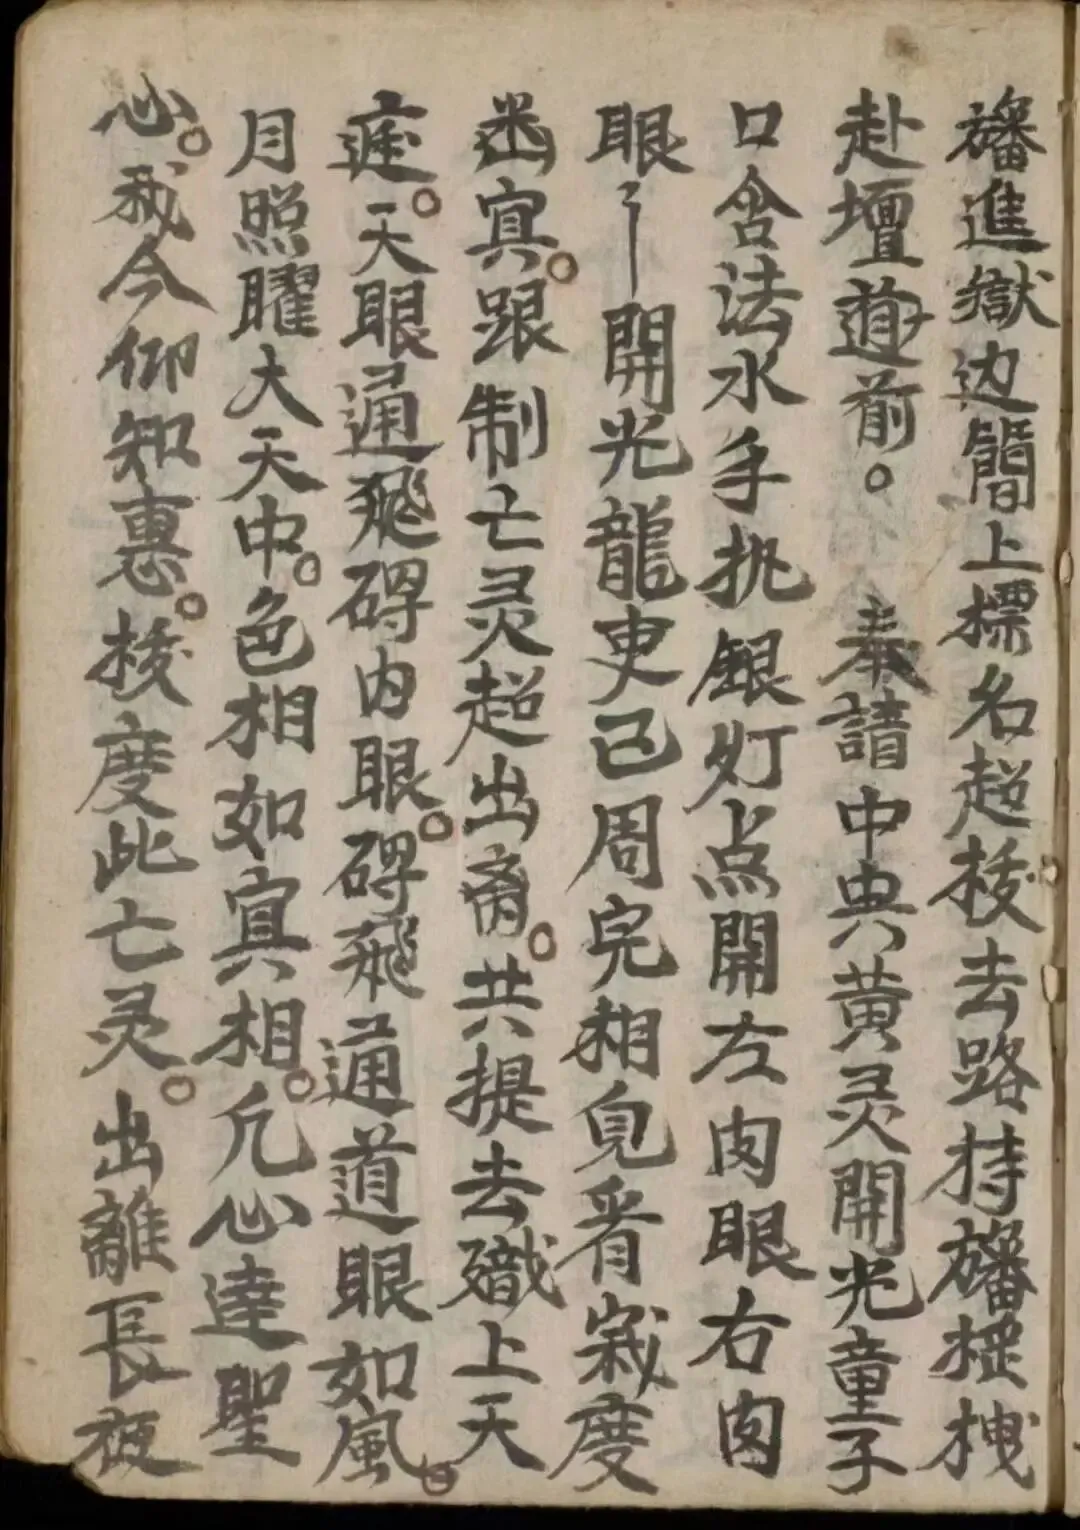 旛進獄边簡上標名超拔去路持旛摧拽
赴壇前。奉請中央黄灵開光童子
口含法水手执銀灯点開左肉眼右肉
眼〻開光龍吏已周完相見看寂度
幽冥。跟制亡灵超出斋。共提去職上天
疰。天眼通飛碍内眼。碍飛通道眼如風。
月照曜大天中。色相如真相。凡心達聖
心。我今仰知惠。拔度此亡灵。出離長夜